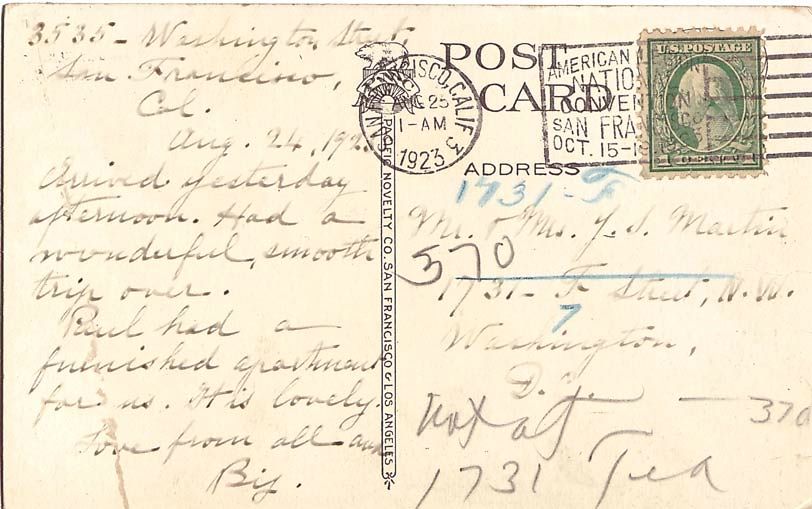 3535 - Washington Street
San Francisco,
Cal.
Aug. 24, 192
Arrived yesterday
afternoon. Had a
wonderful, smooth
trip over.
Paul had a
furnished apartment
for us. It is lovely.
Love from all and
POST
CARD
ADDRESS
SAN FRANCISCO, CALIF. 3
AUG 25
1-AM
1923
AMERICAN
NATIO
CONVEN
SAN FRA
OCT. 15-19
U.S. POSTAGE
PACIFIC NOVELTY CO. SAN FRANCISCO & LOS ANGELES
1731 - F
Mr. & Mrs. Martin
370
1731 - F Street, N.W.
7
Washington,
D.C.
Not at — 370
1731